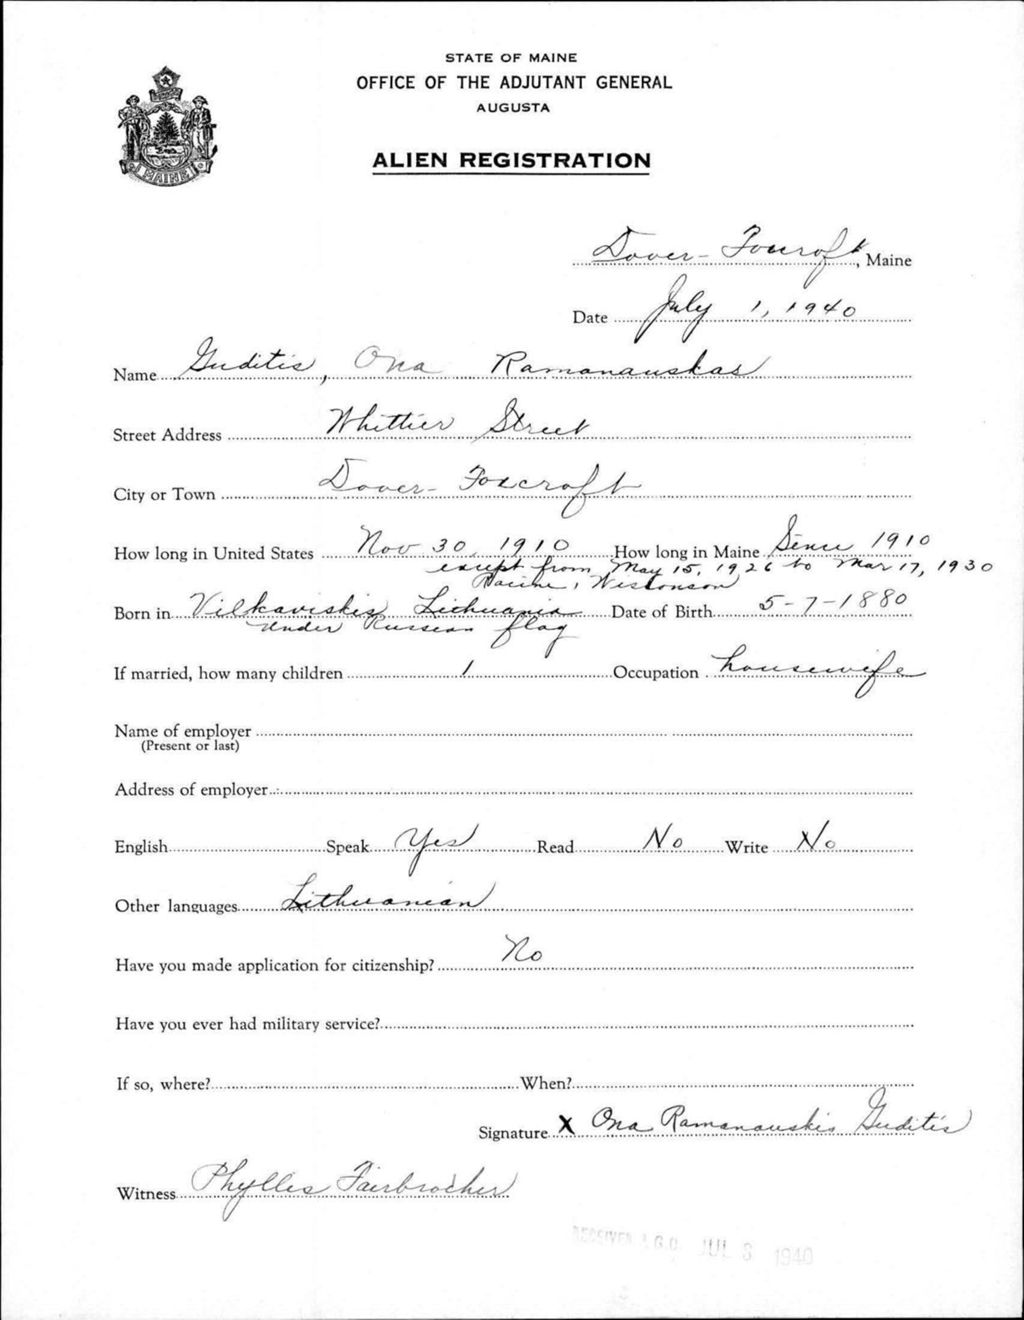 STATE OF MAINE
OFFICE OF THE ADJUTANT GENERAL
AUGUSTA
ALIEN REGISTRATION
MAINE
Dover-Foxcroft, Maine
Date July 1, 1940
Name Guditis, Ona Ramanauskas
Street Address Whittier Street
City or Town Dover-Foxcroft
How long in United States Nov 30, 1910 How long in Maine Since 1910
except from May 15, 1926 to Mar 17, 1930
Racine, Wisconson
Born in Vilkaviskis Lithuania Date of Birth 5-7-1880
under Russian flag
If married, how many children 1 Occupation housewife
Name of employer
(Present or last)
Address of employer
English Speak Yes Read No Write No
Other languages Lithuanian
Have you made application for citizenship? No
Have you ever had military service?
If so, where? When?
Signature X Ona Ramanauskis Guditis
Witness Phyllis Fairbrother
RECEIVED A.G.O. JUL 3 1940